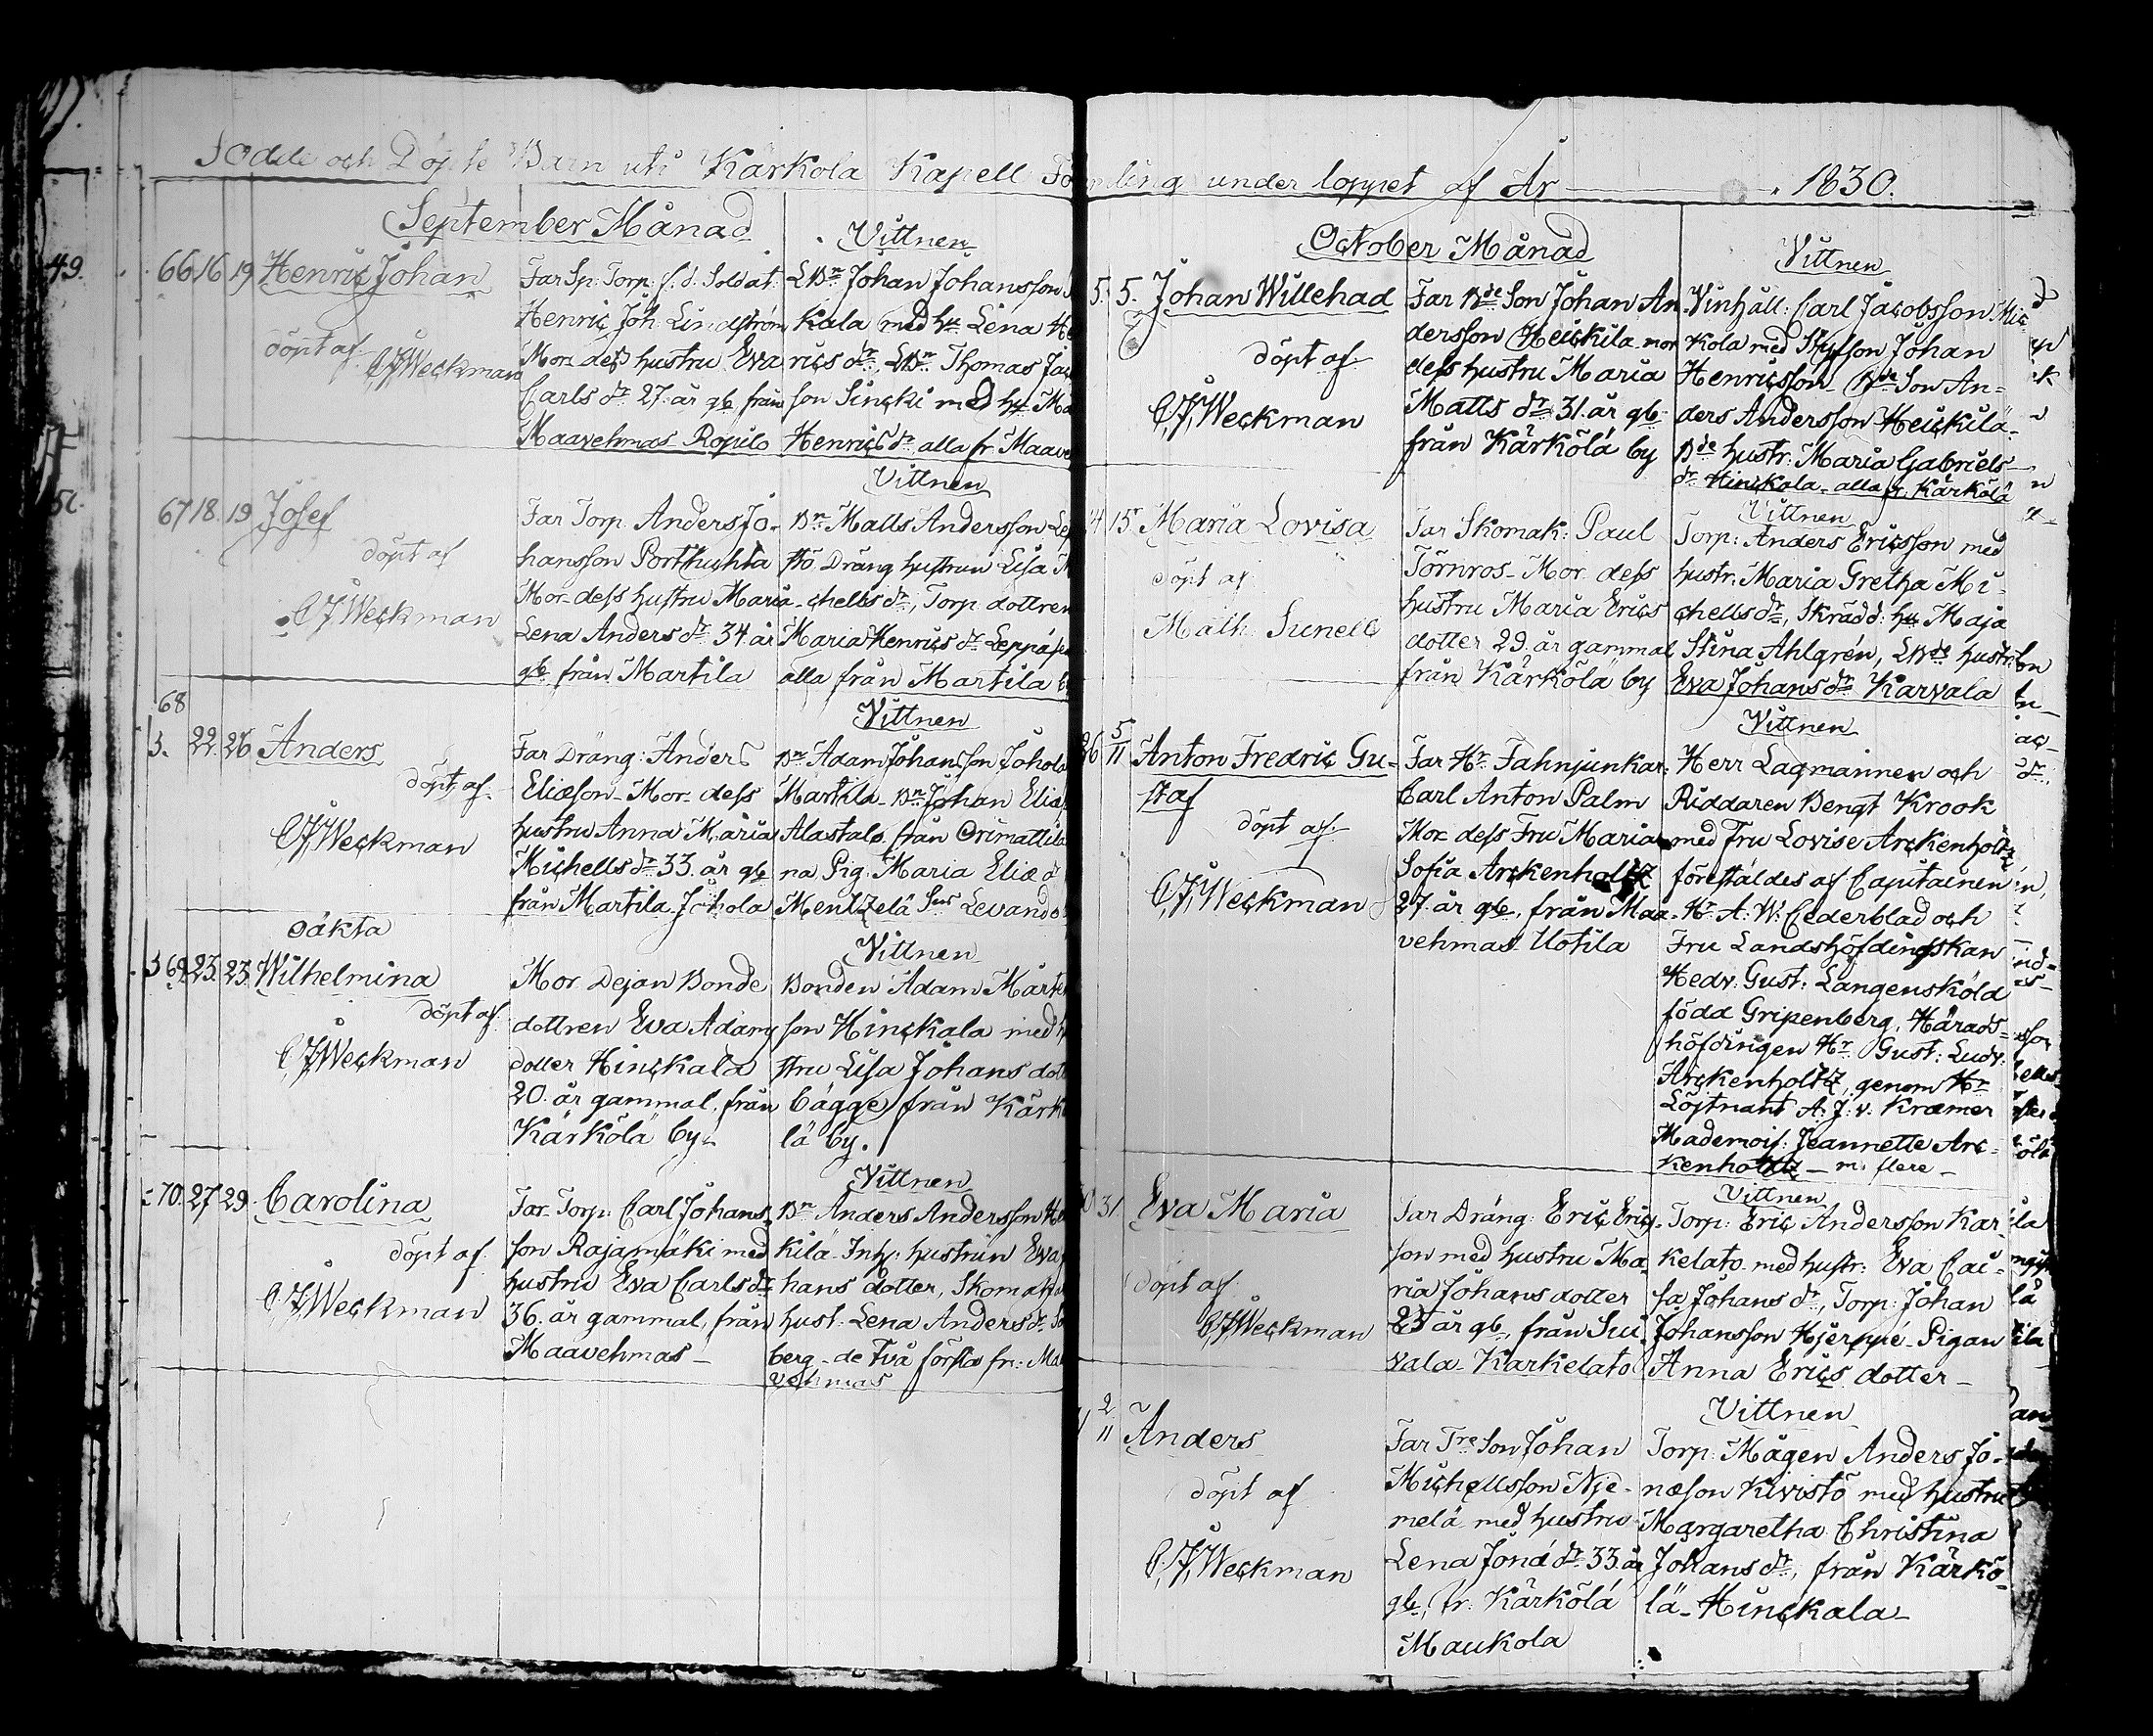 Födde och Döpte Barn uti Kärkola Kapell Församling under loppet af År 1830.
September Månad
Vittnen
66 16 19 Henric Johan
döpt af
CJWeckman
Far Sp: Torp: f.d. Soldat
Henric Joh: Lindström
Mor dess hustru Eva
Carls dr 27. år gl från
Maavehmas Ropilo
LBn Johan Johansson
Kala med hu Lena He
rics dr, LBn Thomas Jac
son Sincki med hu Ma
Henrics dr alla fr Maave
Vittnen
67 18. 19 Josef
döpt af
CJWeckman
Far Torp. Anders Jo-
hansson Porthuhta
Mor dess hustru Maria
Lena Anders dr 34 år
gl från Martila
Bn Matts Andersson Lep
stö Dräng hustrun Lisa M
chells dr, Torp. dottren
Maria Henrics dr Leppä
alla från Martila b
Vittnen
68
22. 26 Anders
döpt af
CJWeckman
Far Dräng: Anders
Eliæson Mor dess
hustru Anna Maria
Michells dr 33. år gl
från Martila Johola
Bn Adam Johansson Johola
Martila Bn Johan Eliæ
Alastalo från Orimattila
na Pig: Maria Eliæ d
Mentzelä Levando
oäkta
Vittnen
69 23. 23. Wilhelmina
döpt af
CJWeckman
Mor Dejan Bonde
dottren Eva Adams
dotter Hinckala
20. år gammal, från
Kärkölä by.
Bonden Adam Mårten
son Hinckala med h
stru Lisa Johans dott
bägge från Kärkö
lä by.
Vittnen
70. 27 29. Carolina
döpt af
CJWeckman
Far Torp: Carl Johans
son Rajamäki med
hustru Eva Carls dr
36. år gammal, från
Maavehmas
Bn Anders Andersson He
kilä Inh: hustrun Eva
hans dotter, Skomak
hust: Lena Anders dr
berg de Två första fr: Maa
vehmas
October Månad
Vittnen
5. 5. Johan Willehad
döpt af
CJWeckman
Far Bde Son Johan An
dersson Heickila mor
dess hustru Maria
Matts dr 31. år gl
från Kärkölä by
Vinhåll: Carl Jacobsson Mic
Kola med Styfson Johan
Henricsson Bde Son An-
ders Andersson Heickilä
Bde hustr: Maria Gabriels
dr Hinckala alla fr Kärkölä
Vittnen
4. 15 Maria Lovisa
döpt af
Math: Sunell
Far Skomak: Paul
Törnros Mor dess
hustru Maria Erics
dotter 29. år gammal
från Kärkölä by
Torp: Anders Ericsson med
hustr. Maria Gretha Mi-
chells dr, Skrädd: hu Maja
Stina Ahlgrén, LBde hustr
Eva Johans dr Karvala
Vittnen
26 5/11 Anton Fredric Gu-
staf
döpt af
CJWeckman
Far Hr Fahnjunkar:
Carl Anton Palm
Mor dess Fru Maria
Sofia Arckenholtz
27. år gl, från Maa-
vehmas Uotila
Herr Lagmannen och
Riddaren Bengt Krook
med Fru Lovise Arckenholtz
föreställdes af Capitainen
Hr A: W: Cederblad och
Fru Landshöfdingskan
Hedv: Gust: Langensköld
föda Gripenberg, Härads-
höfdingen Hr Gust: Ludv:
Arckenholtz, genom Hr
Löjtnant A: J: v. Kræmer
Mademois: Jeannette Arc-
kenholtz m. flere
Vittnen
31. Eva Maria
döpt af
CJWeckman
Far Dräng: Eric Erics-
son med hustru Ma-
ria Johans dotter
år gl, från Sui
vala Karkelato
Torp: Eric Andersson Kar-
kelato med hustr: Eva Cai-
sa Johans dr, Torp: Johan
Johansson Hjerppé Pigan
Anna Erics dotter
Vittnen
2/11 Anders
döpt af
CJWeckman
Far Tre Son Johan
Michellsson Nje-
melä med hustru
Lena Jona dr 33. år
gl, fr: Kärkölä
Maukola
Torp: Mågen Anders Jo-
næson Kivistö med hustru
Margaretha Christina
Johans dr, från Kärkö-
lä Hinckala